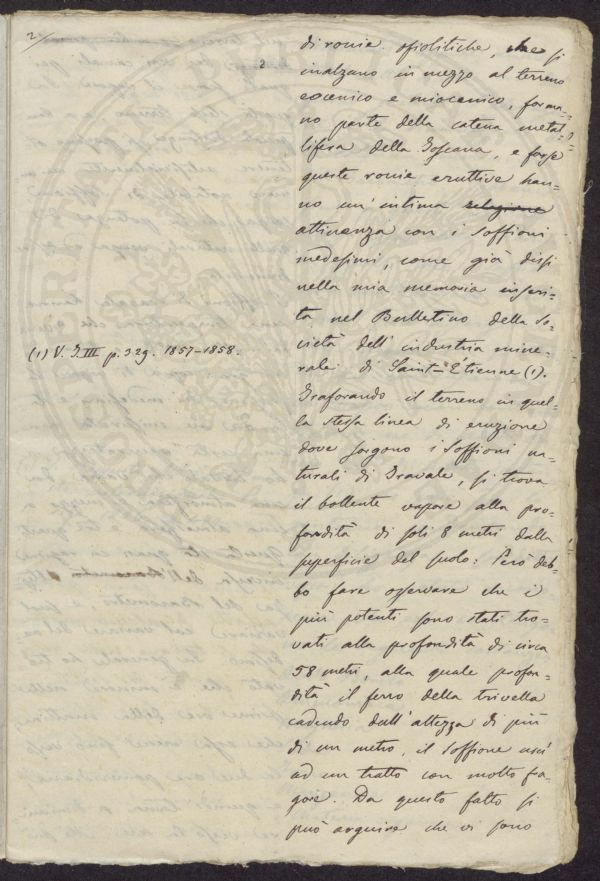 2/
2
di rocie ofiolitiche, che si
inalzano in mezzo al terreno
eocenico e miocenico, forma-
no parte della catena metal-
lifera della Toscana, e forse
queste rocie eruttive han-
no un'intima relazione
attinenza con i Soffioni
medesimi, come già dissi
nella mia memoria inseri-
ta nel Bullettino della So-
cietà dell'industria mine-
rale di Saint-Étienne (1).
(1) V. T. III p. 329. 1857-1858.
Traforando il terreno in quel-
la stessa linea di eruzione
dove sorgono i Soffioni na-
turali di Travale, si trova
il bollente vapore alla pro-
fondità di soli 8 metri dalla
superficie del suolo: Però deb-
bo fare osservare che i
più potenti sono stati tro-
vati alla profondità di circa
58 metri, alla quale profon-
dità il ferro della trivella
cadendo dall'altezza di più
di un metro, il Soffione uscì
ad un tratto con molto fra-
gore. Da questo fatto si
può arguire che vi sono